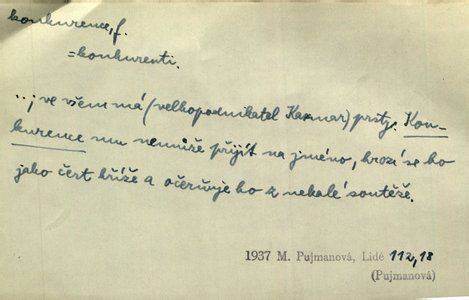 konkurence, f.
= konkurenti.
...; ve všem má (velkopodnikatel Kazmar) prsty. Kon-
kurence mu nemůže přijít na jméno, hrozí se ho
jako čert kříže a očerňuje ho z nekalé soutěže.
1937 M. Pujmanová, Lidé 112,18
(Pujmanová)